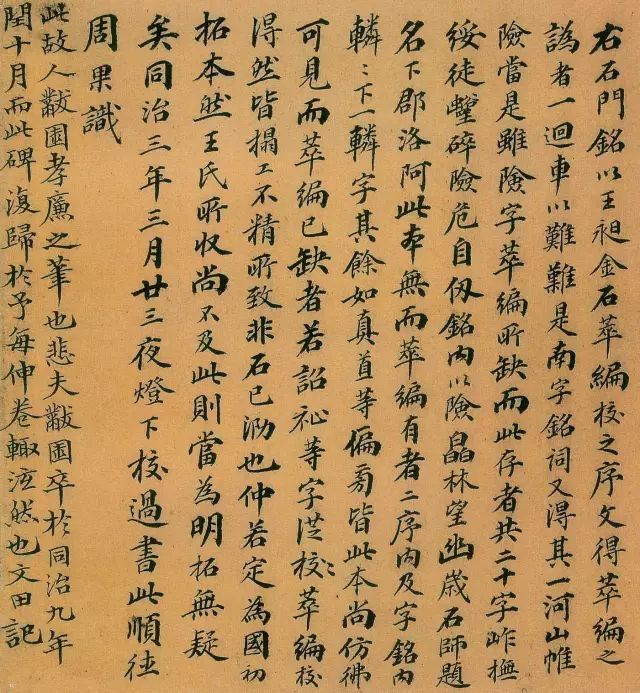 右石門銘以王昶金石萃編校之序文得萃編之
譌者一迴車以難難是南字銘詞又得其一河山帷
險當是雖險字萃編所缺而此存者共二十字岞
綏徒碎險危自仭銘內以險晶林望幽歲石師題
名下郡洛阿此本無而萃編有者二序內及字銘內
轔〻下一轔字其餘如真首等偏旁皆此本尚仿彿
可見而萃編已缺者若詔祉等字校〻萃編校
得然皆搨工不精所致非石已泐也仲若定為國初
拓本然王氏所收尚不及此則當為明拓無疑
矣同治三年三月廿三夜燈下校過書此順德
周果識
此故人黻園孝廉之筆也悲夫黻園卒於同治九年
閏十月而此碑復歸於予每伸卷輙泫然也文田記